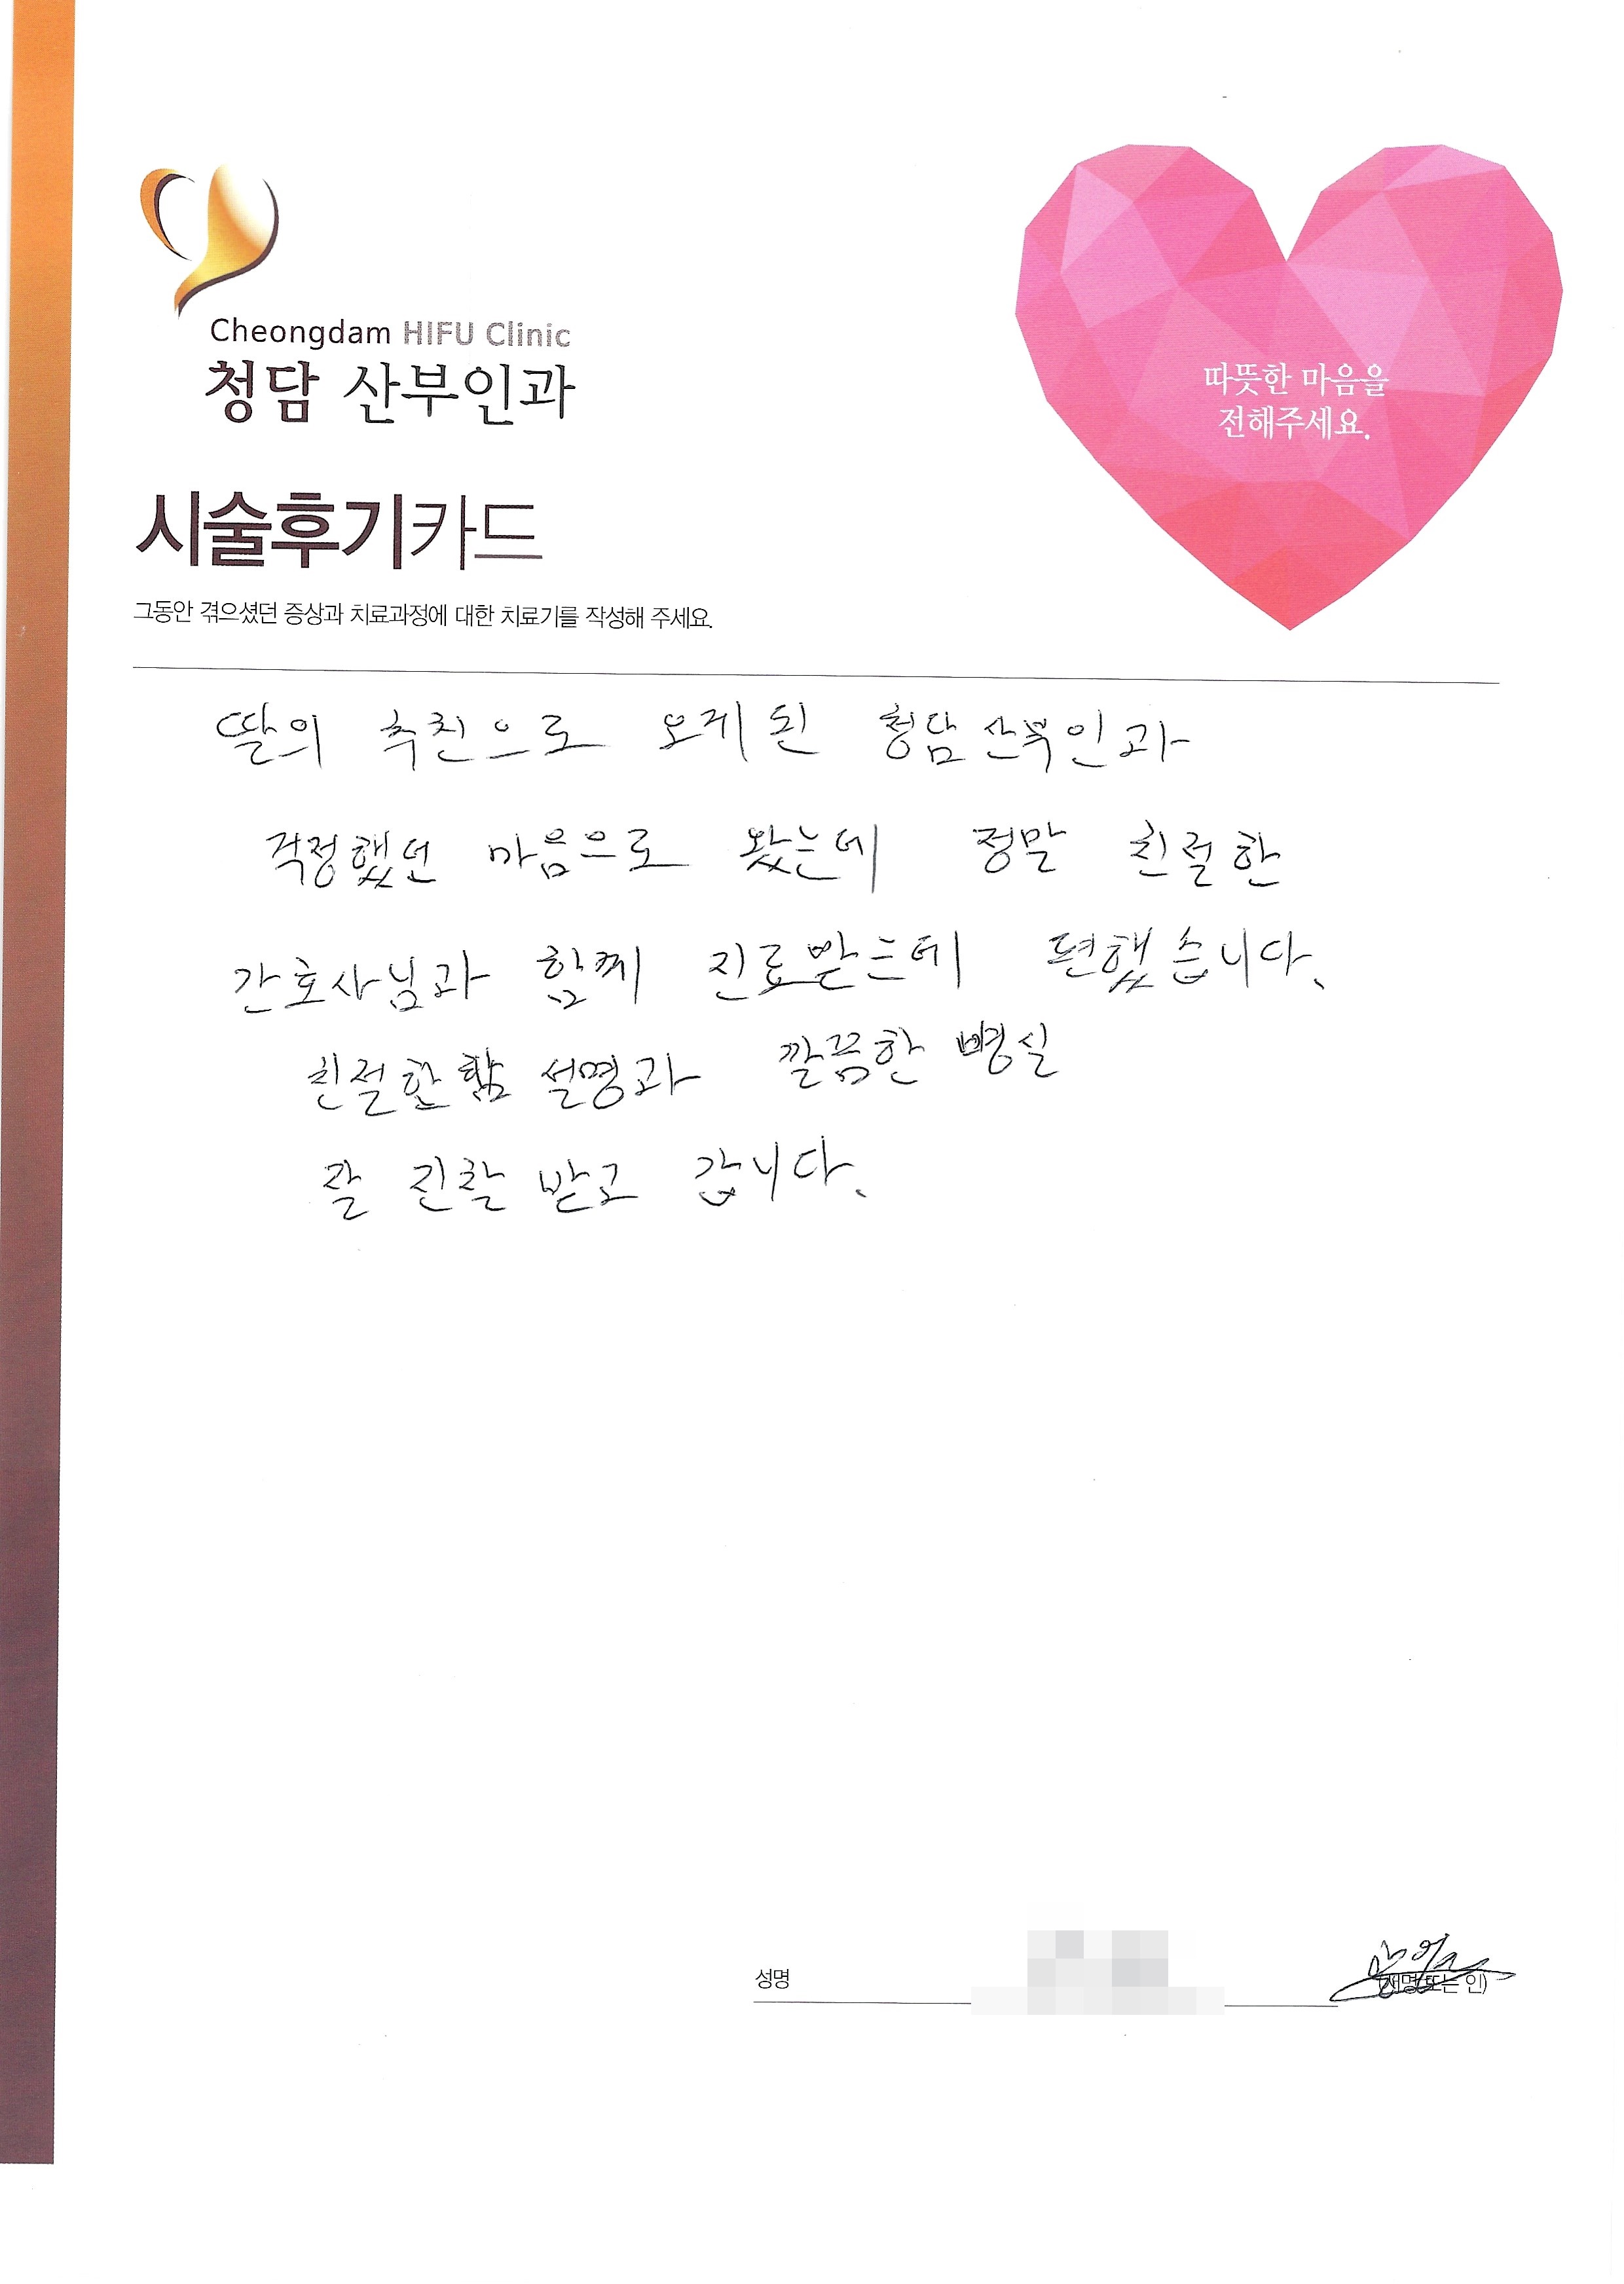 Cheongdam HIFU Clinic
청담 산부인과
따뜻한 마음을
전해주세요.
시술후기카드
그동안 겪으셨던 증상과 치료과정에 대한 치료기를 작성해 주세요.
딸의 추천으로 오게 된 청담산부인과
걱정했던 마음으로 왔는데 정말 친절한
간호사님과 함께 진료받는데 편했습니다.
친절한 설명과 깔끔한 병실
잘 진찰 받고 갑니다.
성명
(서명 또는 인)